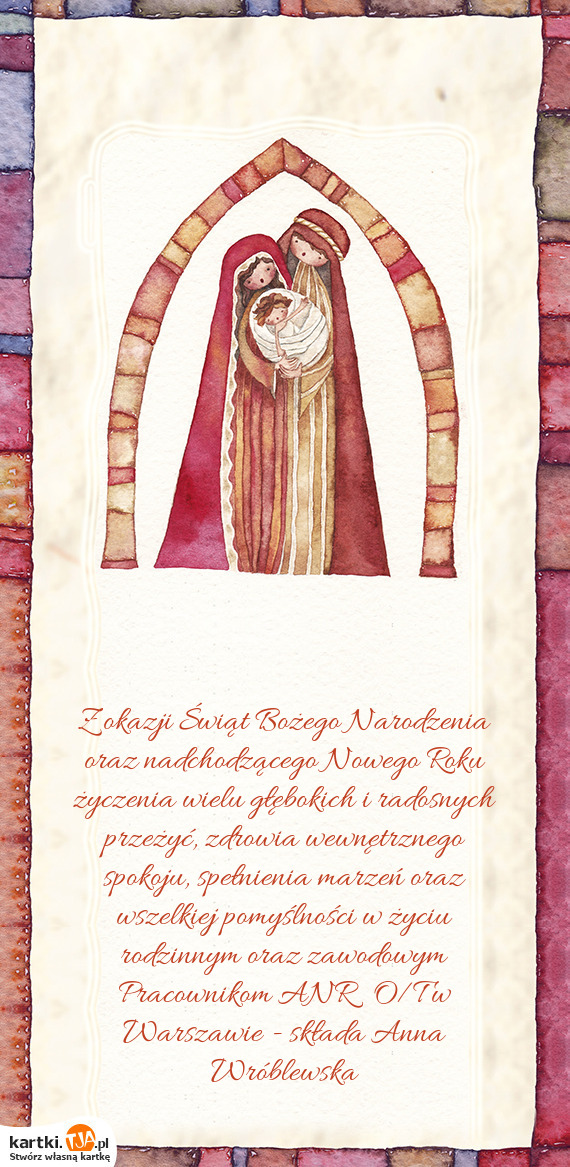 Z okazji Świąt Bożego Narodzenia
oraz nadchodzącego Nowego Roku
życzenia wielu głębokich i radosnych
przeżyć, zdrowia wewnętrznego
spokoju, spełnienia marzeń oraz
wszelkiej pomyślności w życiu
rodzinnym oraz zawodowym
Pracownikom ANR O/T w
Warszawie - składa Anna
Wróblewska
kartki.TJA.pl
Stwórz własną kartkę